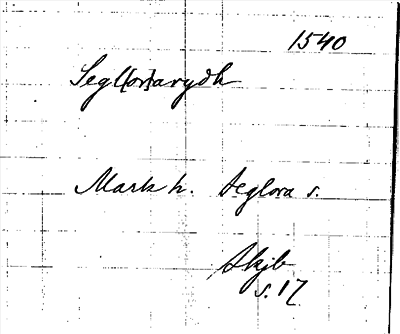 1540
Segl(or)arydh
Mark h. Seglora s.
Skjb
s. 17